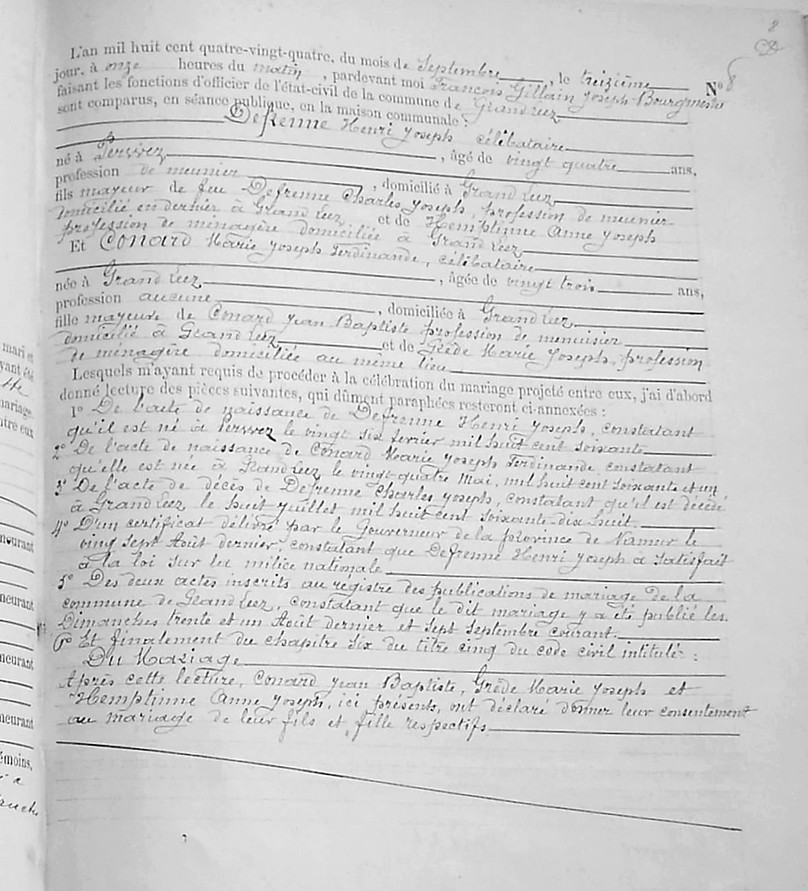 8
L'an mil huit cent quatre-vingt-quatre, du mois de Septembre, le treizième
jour, à onze heures du matin, pardevant moi François Gillain Joseph Bourgmestre N° 8
faisant les fonctions d'officier de l'état-civil de la commune de Grand Leez
sont comparus, en séance publique, en la maison communale :
Defrenne Henri Joseph, célibataire
né à Perwez, âgé de vingt quatre ans,
profession de meunier, domicilié à Grand Leez
fils mayeur de feu Defrenne Charles Joseph, profession de meunier
domicilié en dernier à Grand Leez et de Hemptinne Anne Joseph
profession de ménagère domiciliée à Grand Leez
Et Conard Marie Joseph Ferdinande, célibataire
née à Grand Leez, âgée de vingt trois ans,
profession aucune, domiciliée à Grand Leez
fille mayeure de Conard Jean Baptiste profession de menuisier
domicilié à Grand Leez et de Grède Marie Joseph, profession
de ménagère domiciliée au même lieu
Lesquels m'ayant requis de procéder à la célébration du mariage projeté entre eux, j'ai d'abord
donné lecture des pièces suivantes, qui dûment paraphées resteront ci-annexées :
1° De l'acte de naissance de Defrenne Henri Joseph, constatant
qu'il est né à Perwez le vingt six février mil huit cent soixante
2° De l'acte de naissance de Conard Marie Joseph Ferdinande, constatant
qu'elle est née à Grand Leez le vingt quatre Mai, mil huit cent soixante et un
3° De l'acte de décès de Defrenne Charles Joseph, constatant qu'il est décédé
à Grand Leez le huit juillet mil huit cent soixante-dix huit.
4° D'un certificat délivré par le Gouverneur de la province de Namur le
vingt sept Août dernier, constatant que Defrenne Henri Joseph a satisfait
à la loi sur la milice nationale
5° Des deux actes inscrits au registre des publications de mariage de la
commune de Grand Leez, constatant que le dit mariage y a été publié les
Dimanches trente et un Août dernier et sept Septembre courant.
6° Et finalement du chapitre six du titre cinq du code civil intitulé :
Du Mariage
Après cette lecture, Conard Jean Baptiste, Grède Marie Joseph et
Hemptinne Anne Joseph, ici présents, ont déclaré donner leur consentement
au mariage de leur fils et fille respectifs